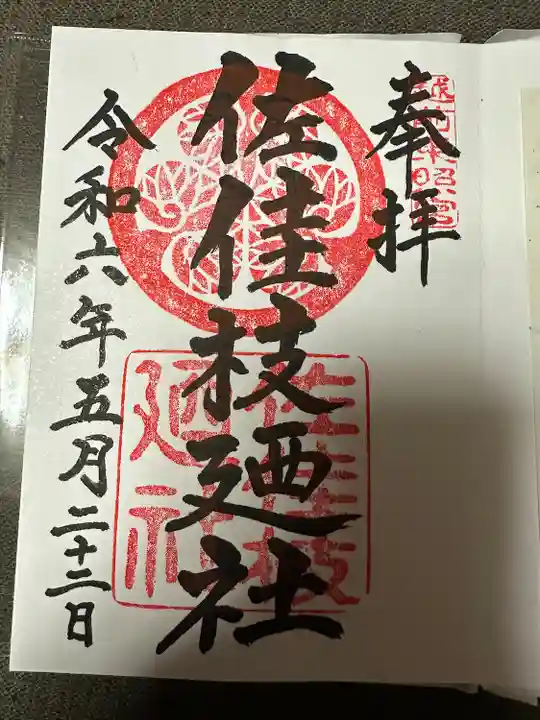 奉拝
越前東照宮
佐佳枝廼社
佐佳枝
廼社
令和六年五月二十二日